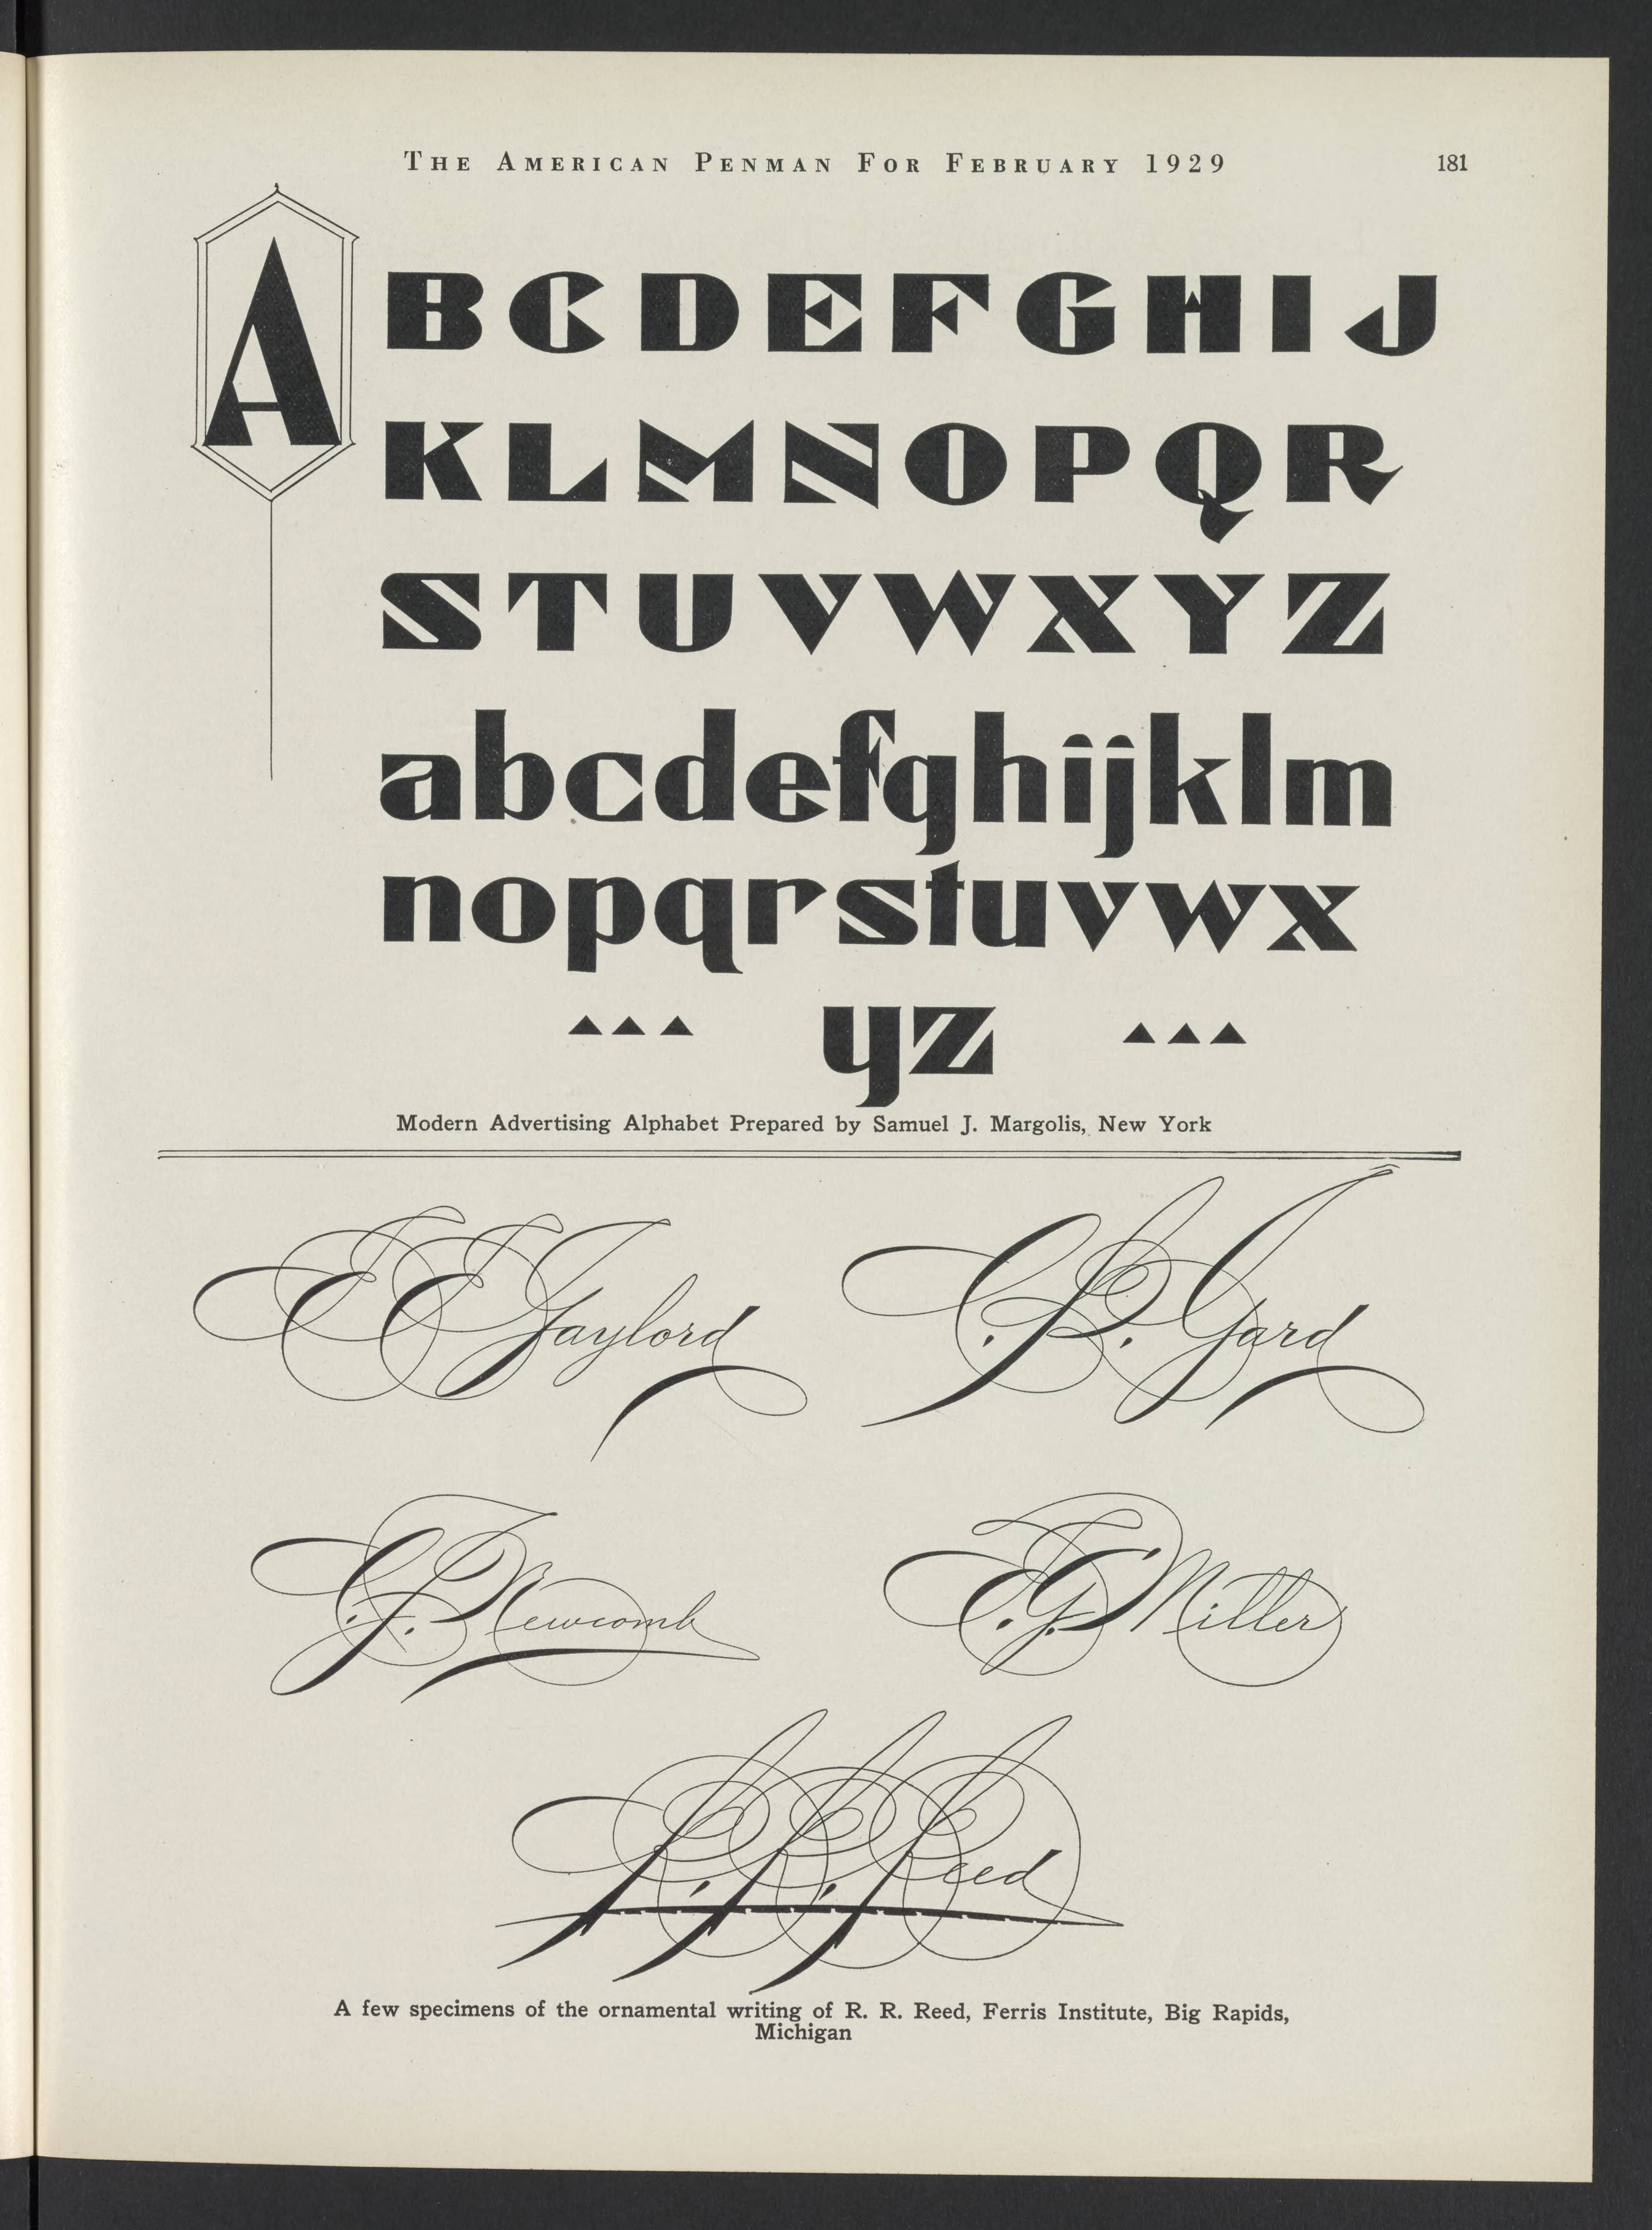 The American Penman For February 1929 181
A B C D E F G H I J
K L M N O P Q R
S T U V W X Y Z
a b c d e f g h i j k l m
n o p q r s t u v w x
y z
Modern Advertising Alphabet Prepared by Samuel J. Margolis, New York
E E Gaylord
C. P. Gard
G. F. Newcomb
E. G. Miller
R. R. Reed
A few specimens of the ornamental writing of R. R. Reed, Ferris Institute, Big Rapids,
Michigan